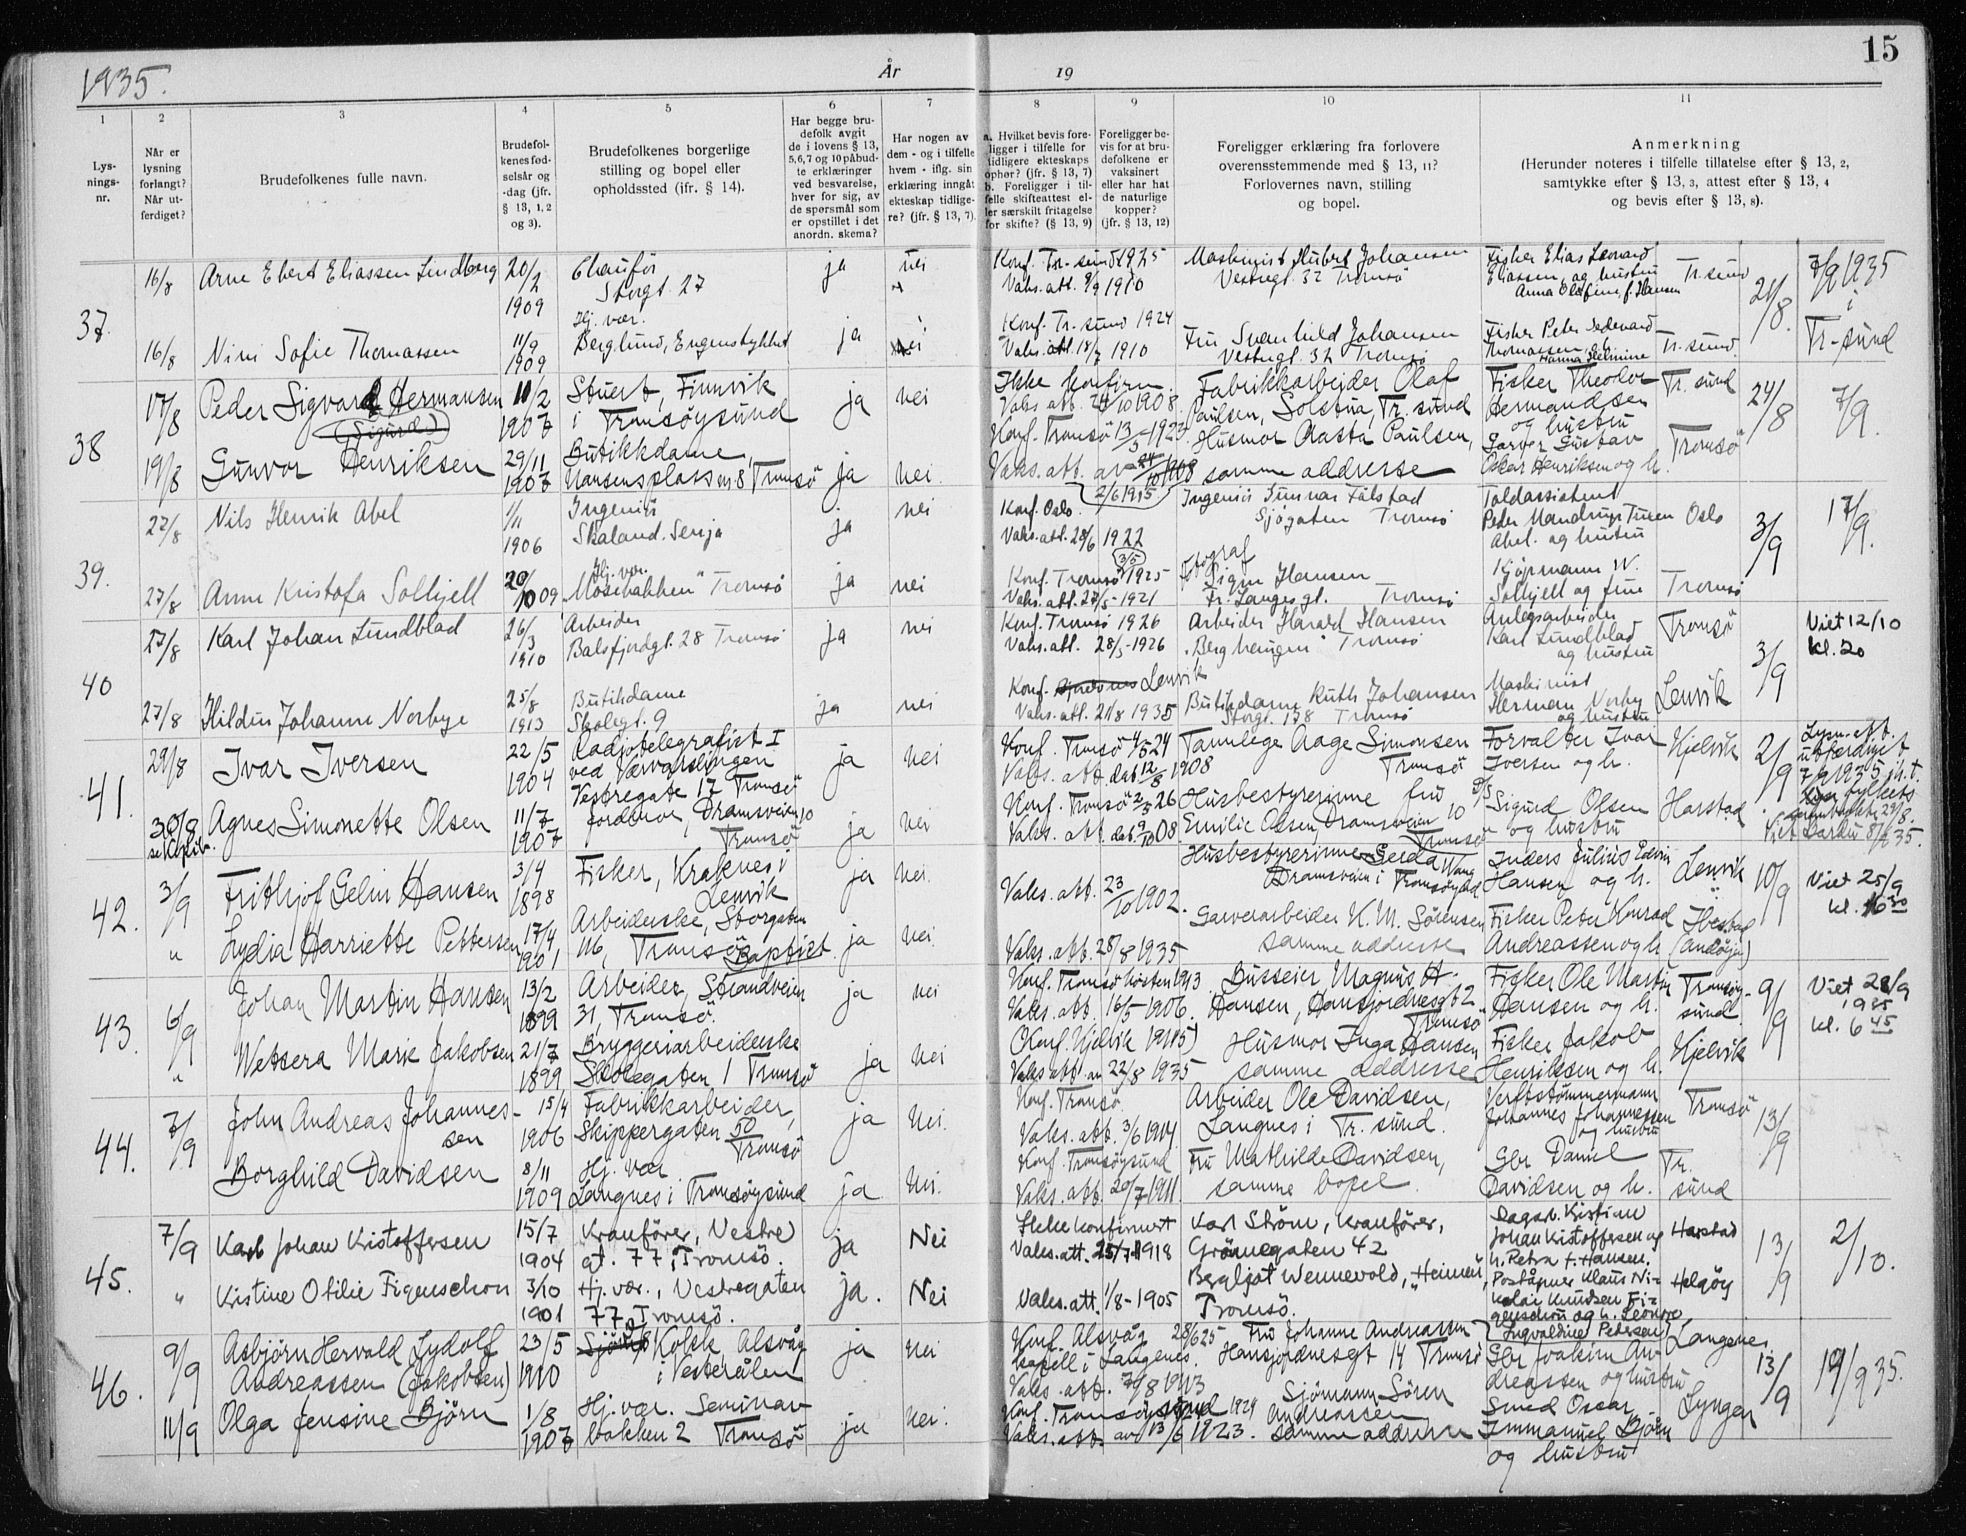 1935.
År
19
15
1
2
3
4
5
6
7
8
9
10
11
Lys-
nings-
nr.
Når er
lysning
forlangt?
Når ut-
ferdiget?
Brudefolkenes fulle navn.
Brudefol-
kenes fød-
selsår og
-dag (jfr.
§ 13, 1, 2
og 3).
Brudefolkenes borgerlige
stilling og bopel eller
opholdssted (jfr. § 14).
Har begge bru-
defolk avgit
de i lovens § 13,
5,6,7 og 10 påbud-
te erklæringer
ved besvarelse,
hver for sig, av
de spørsmål som
er opstillet i det
anordn. skema?
Har nogen av
dem - og i tilfelle
hvem - iflg. sin
erklæring inngåt
ekteskap tidlige-
re? (jfr. § 13, 7).
a. Hvilket bevis fore-
ligger i tilfelle for
tidligere ekteskaps
ophør? (jfr. § 13, 7)
b. Foreligger i til-
felle skifteattest el-
ler særskilt fritagelse
for skifte? (§ 13, 9)
Foreligger be-
vis for at bru-
defolkene er
vaksinert
eller har hat
de naturlige
kopper?
(jfr. § 13, 12)
Foreligger erklæring fra forlovere
overensstemmende med § 13, 11?
Forlovernes navn, stilling
og bopel.
Anmerkning
(Herunder noteres i tilfelle tillatelse efter § 13, 2,
samtykke efter § 13, 3, attest efter § 13, 4
og bevis efter § 13, 8).
37.
16/8 Arne Ebert Eliassen Lindberg 20/2 1909
Chaufför
Storgt. 27
ja nei
Konf. Tr-sund 1925
Vaks. att. 9/9 1910
Maskinist Hubert Johansen
Vestregt. 32 Tromsö
Fisker Elias Leonard
Eliassen og hustru
Anna Olefine f. Hansen
Tr. sund
24/8.
7/9 1935
i
Tr-sund
16/8 Nini Sofie Thomassen 11/9 1909
Hj. vær.
Berglund, Engenstykket
ja nei
Konf. Tr. sund 1924
Vaks. att. 18/7 1910
Fru Svanhild Johansen
Vestregt. 32 Tromsö
Fisker Peter Jedevard
Thomassen og h.
Hanna Helmine
Tr. sund
38
17/8 Peder Sigvard Hermansen
(Sigurd)
11/2 1907
Stuert, Finnvik
i Tromsöysund
ja nei
Ikke konfirm.
Vaks att. 24/10 1908.
Fabrikkarbeider Olaf
Paulsen, Solstua, Tr. sund
Fisker Theodor
Hermandsen
og hustru
Tr. sund
24/8
7/9.
19/8 Gunvor Henriksen 29/11 1907
Butikkdame,
Hansensplass nr 8 Tromsö
ja nei.
Konf. Tromsö 13/5 1923
Vaks. att. av 24/10 1908
Husmor Aasta Paulsen,
samme addresse
Garver Gustav
Oskar Henriksen og h.
Tromsö
39.
27/8 Nils Henrik Abel 1/11 1906
Ingeniör
Skaland. Senja
ja nei
Konf. Oslo
Vaks. att. 28/6 1922
Ingeniör Gunnar Fålstad
Sjögaten Tromsö
Toldassistent
Peder Mandrup Tuxen
Abel. og hustru
Oslo
3/9
17/9.
27/8 Anne Kristofa Solhjell 20/10 09
Hj. vær.
"Mosebakken" Tromsö
ja nei
Konf. Tromsö 1925
Vaks. att. 27/5-1921
Fotograf
Sigrn Hansen
Fr. Langes gt. Tromsö
Kjöpmann W.
Solhjell og frue
Tromsö
40
27/8 Karl Johan Lundblad 26/3 1910
Arbeider
Balsfjordgt. 28 Tromsö
ja nei
Konf. Tromsö 1926
Vaks. att. 28/5-1926
Arbeider Harald Hansen
Tromsö
Anlegsarbeider
Karl Lundblad
og hustru
Tromsö
3/9
Viet 12/10
kl. 20
27/8 Hildur Johanne Norbye 25/8 1913
Butikdame
Skolegt. 9
ja nei
Konf. Lenvik
Vaks. att. 21/8 1935
Butikdame Ruth Johansen
Storgt. 138 Tromsö
Maskinist
Herman Norby
og hustru
Lenvik
41.
29/8 Ivar Iversen 22/5 1904
Radiotelegrafist I
ved Værvarslingen
Vestregate 17 Tromsö
ja nei
Konf. Tromsö 4/5 24
Vaks. att. dat 12/8 1908
Tannlege Aage Simonsen
Tromsö
Forvalter Ivar
Iversen og h.
Hjelvik
2/9
Lysn. att.
utferdiget
7/9 1935 jh.t.
fylkets
30/8 Agnes Simonette Olsen 11/7 1907
Jordmor, Dramsveien 10
Tromsö
ja nei
Konf. Tromsö 2/5 26
Vaks. att. dat. 9/10 08
Husbestyrerinne fru
Emilie Olsen, Dramsveien 10
Tromsö
Sigurd Olsen
og hustru
Harstad
42.
3/9 Frithjof Gelin Hansen 3/4 1898
Fisker, Kraknes i
Lenvik
ja nei.
Vaks. att. 23/10 1902.
Husbestyrerinne Gerda Wang
Dramsveien i Tromsöysd
Inders Julius Edvin
Hansen og h.
Lenvik
10/9
Viet 25/9
kl. 16 30
" Lydia Harriette Pettersen 17/4 1901
Arbeiderske, Storgaten
116, Tromsö Baptist
ja nei.
Vaks. att. 28/8 1935
Garverarbeider K.M. Sörensen
samme addresse
Fisker Peter Konrad
Andreassen og h.
Ibestad
(Andörja)
43.
6/9 Johan Martin Hansen 13/2 1899
Arbeider, Strandveien
31, Tromsö.
ja nei
Konf. Tromsö hösten 1913
Vaks. att. 16/5-1906.
Busseier Magnus H.
Hansen, Hansjordnesgt 2
Tromsö
Fisker Ole Martin
Hansen og h.
Tromsöy-
sund.
9/9
Viet 28/9
1935
kl. 6 45
" Wetsera Marie Jakobsen 21/7 1899
Bryggeriarbeiderske
Skolegaten 1 Tromsö
ja nei
(Konf. Hjelvik 1915)
Vaks att. av 22/8 1935
Husmor Inga Hansen
samme addresse
Fisker Jakob
Henriksen og h.
Hjelvik
44.
7/9 John Andreas Johannes-
sen
15/4 1906
Fabrikkarbeider,
Skippergaten 50
Tromsö
ja nei.
Konf. Tromsö
Vaks. att. 3/6 1907
Arbeider Ole Davidsen,
Langnes i Tr. sund.
Verftstömmermann
Johannes Johannessen
og hustru
Tromsö
13/9
Borghild Davidsen 8/11 1909
Hj. vær
Langnes i Tromsöysund
ja nei.
Konf. Tromsöysund
Vaks. att. 20/7 1911.
Fru Mathilde Davidsen,
samme bopel.
Gbr Daniel
Davidsen og h.
Tr.
sund
45.
7/9 Karl Johan Kristoffersen 15/7 1904
Kranförer, Vestre
gt. 77, Tromsö.
ja Nei
Ikke konfirmert
Vaks. att. 25/7-1918
Karl Ström, kranförer,
Grönnegaten 42
Dagarb. Kristian
Johan Kristoffersen og
h. Petra f. Hansen.
Harstad
13/9
2/10.
" Kristine Otilie Figenschou 3/10 1901
Hj. vær., Vestregaten
77 Tromsö.
ja. Nei
Vaks. att. 1/8-1905
Bergljot Wennevold, "Heimen",
Tromsö.
Poståpner Klaus Ni-
kolai Knudsen Fi-
genschou og h. Leonore
Ingvaldine Petersen
Helgöy
46.
9/9 Asbjörn Hervald Lydolf
Andreassen (Jakobsen)
23/5 1910
Kokk Alsvåg
i Vesterålen
ja nei
Konf. Alsvåg 28/6 25
kapell i Langenes.
Vaks. att. 7/8 1913
Fru Johanne Andreassen
Hansjordnesgt 14 Tromsö
Gbr Joakim An-
dreassen og hustru
Langenes
13/9
19/9 35.
11/9 Olga Jensine Björn 1/8 1907
Hj. vær. Seminar-
bakken 2 Tromsö
ja nei.
Konf. Tromsöysund 1924
Vaks. att. av 13/6 1923.
Sjömann Sören
Andreassen
samme addresse
Smed Oscar
Immanuel Björn
og hustru
Lyngen